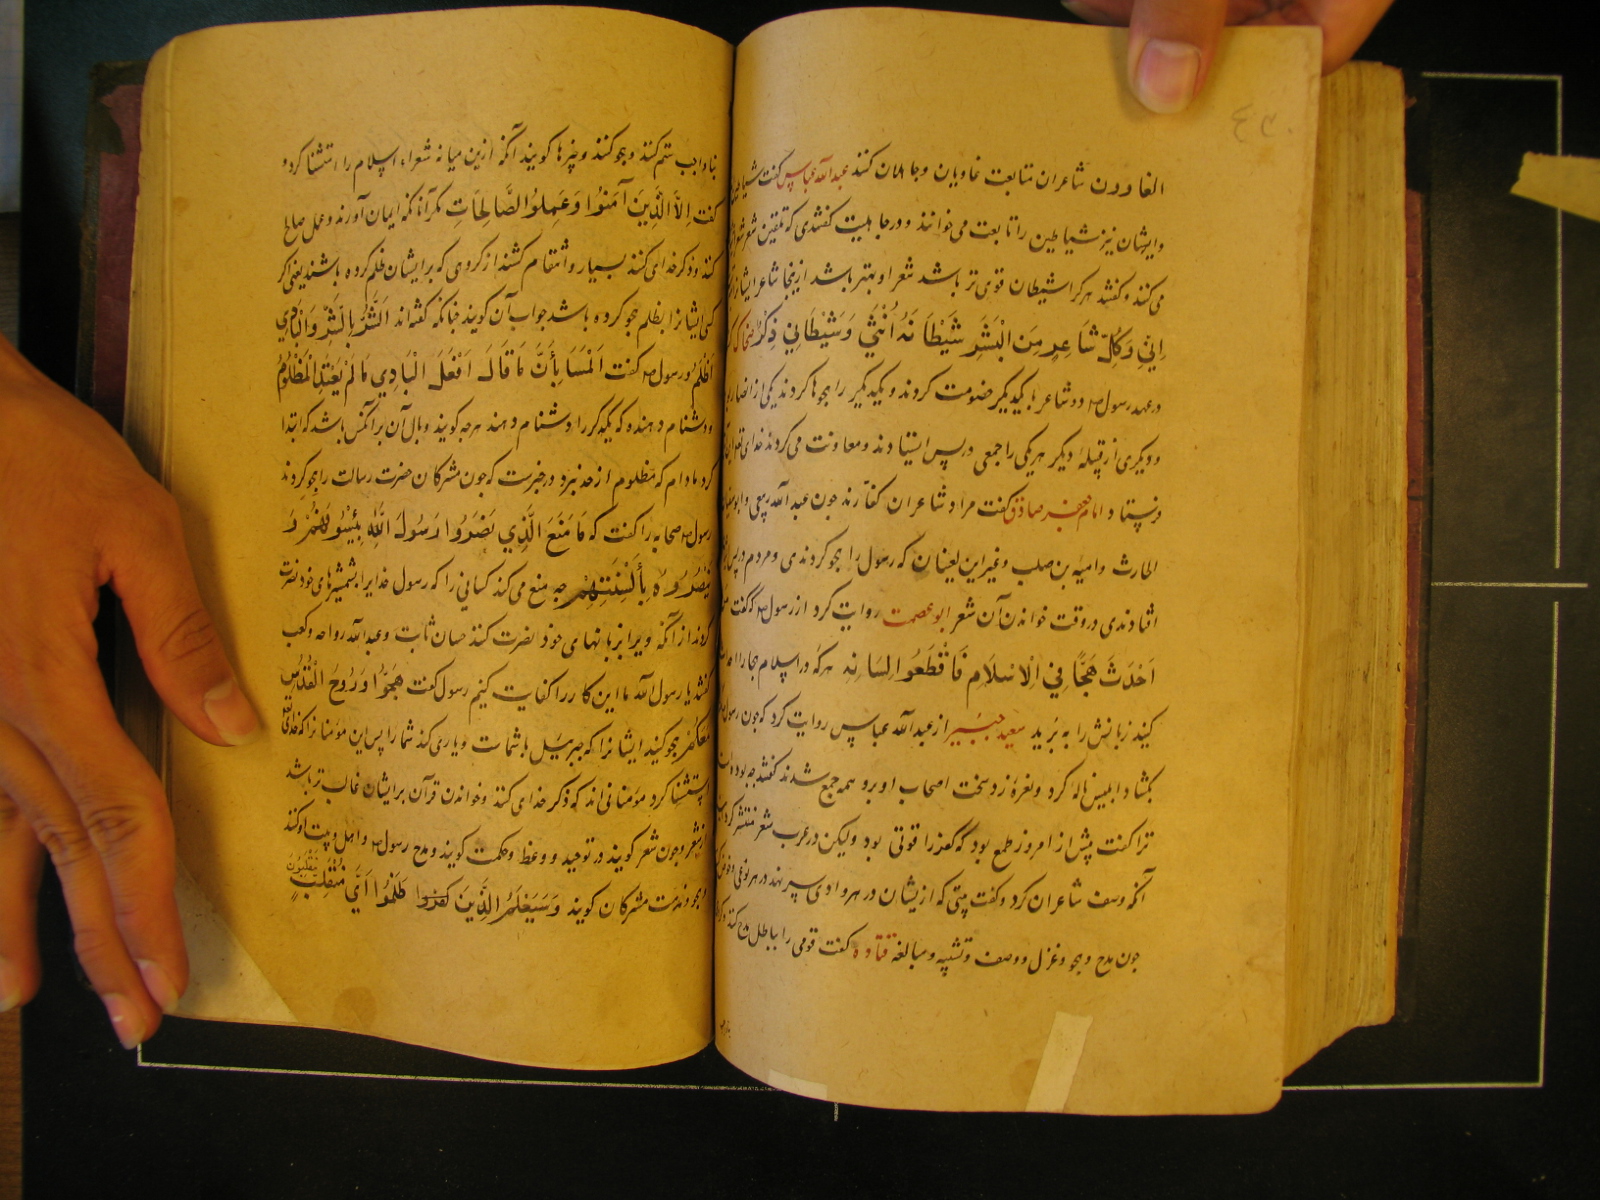 الغاوون شاعران متابعت غاویان و جاهلان کنند عبدالله عباس گفت شیاطین
و ایشان نیز شیاطین را تابعت می‌خوانند و در جاهلیت گفتندی که تلقین شعر شعرا
می‌کنند و گفتند هر کرا شیطان قوی‌تر باشد شعر او بهتر باشد ازینجا شاعر ایشان
اِنّي وَكُلّ شَاعِرٍ مِنَ الْبَشَرِ شَيْطَانَهُ اُنْثَي وَشَيْطَانِي ذِكَرْ ضحاک
در عهد رسول ص دو شاعر با یکدیگر خصومت کردند و یکدیگر را هجوها کردند یکی از انصار
و دیگری از قبیلهٔ دیگر هر یکی را جمعی در پس ایستادند و معاونت می‌کردند خدای تعالی این
فرستاد امام جعفر صادق گفت مراد شاعران کفارند چون عبدالله ربعی و ابوسفیان
الحارث و امیه بن صلب و غیر این لعینان که رسول را هجو کردندی و مردم در پس
افتادندی در وقت خواندن آن شعر ابوعصمت روایت کرد از رسول ص که گفت
اَحْدَثَ هَجًّا فِي الْاسْلَامِ فَاقْطَعُوا لِسَانَه هر که در اسلام هجا را
کنید زبانش را ببرید سعید جبیر از عبدالله عباس روایت کرد که چون رسول
بگشاد ابلیس ناله کرد و نعرهٔ زد سخت اصحاب او برو همه جمع شدند گفتند چه بوده است
ترا گفت پیش از امروز طمع بود که کفر را قوتی بود ولیکن در عرب شعر منتشر کرد
آنکه وصف شاعران کرد و گفت بینی که از ایشان در هر وادی سر نهند در هر نوعی
چون مدح و هجو و غزل و وصف و تشبیه و مبالغه قتاده گفت قومی را بباطل مدح کنند
بناواجب ستم کنند و هجو کنند و چیزها گویند آنکه ازین میانه شعراء اسلام را استثنا کرد و
گفت اِلاَّ الَّذِينَ آمَنُوا وَعَمِلوُا الصَّالِحَاتِ مگر آنانکه ایمان آورند و عمل صالح
کنند و ذکر خدای کنند بسیار و انتقام کشند از گروهی که بر ایشان ظلم کرده باشند یعنی اگر
کسی ایشانرا بظلم هجو کرده باشد جواب آن گویند چنانکه گفته‌اند اَلشَّرُّ بِالشَّرِّ وَالْبَادِي
اَظْلَمُ و رسول ص گفت اَلْمُسَابَّانِ مَا قَالَا فَعَلَي الْبَادِي مَا لَمْ يَعْتَدِ الْمَظْلُومُ
دو دشنام دهنده که یکدیگر را دشنام دهند هر چه گویند وبال آن بر آنکس باشد که ابتدا
کرد مادام که مظلوم از حد نبرد در خبرست که چون مشرکان حضرت رسالت را هجو کردند
رسول ص صحابه را گفت که مَا مَنَعَ الَّذِي نَصَرُوا رَسُولَ اللهِ بِسُيُوفِهِمْ وَ
يَنْصُرُوهُ بِأَلْسِنَتِهِمْ چه منع می‌کند کسانی را که رسول خدایرا بشمشیرهای خود نصرت
کردند از آنکه ویرا بزبانهای خود نصرت کنند حسان ثابت و عبدالله رواحه و کعب
گفتند یا رسول الله ما این کار را کفایت کنیم رسول گفت هَجَوْا وَرُوحُ الْقُدُسِ
مَعَكُمْ هجو کنید ایشانرا که جبرئیل با شماست و یاری کند شما را پس این مؤمنانرا که خدای تعالی
استثنا کرد مؤمنانی‌اند که ذکر خدای کنند و خواندن قرآن بر ایشان غالب‌تر باشد
از شعر و چون شعر گویند در توحید و وعظ و حکمت گویند و مدح رسول ص و اهل بیت او کنند
و هجو و مذمت مشرکان گویند وَسَيَعْلَمُ الَّذِينَ كفروا ظَلَمُوا اَيَّ مُنْقَلَبٍ يَنْقَلِبُونَ